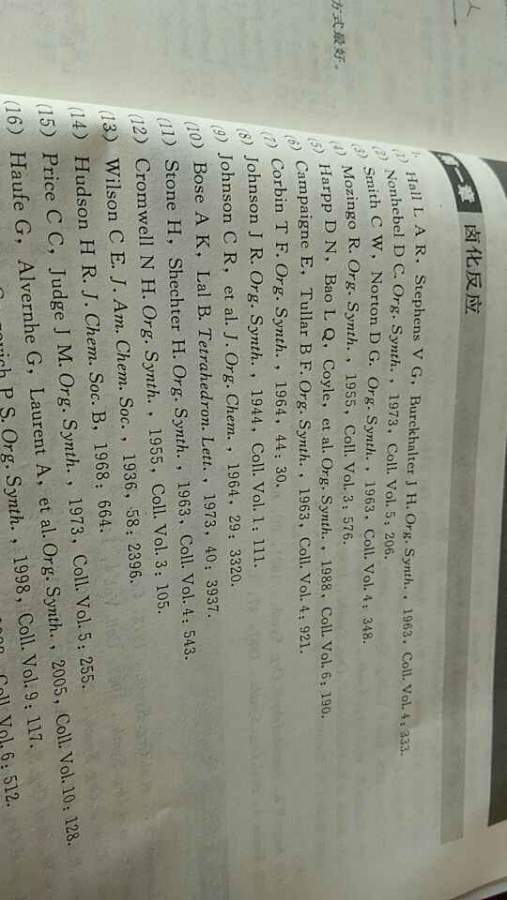 方式最好。
人
第一章 卤化反应
1.
(1) Hall L A R, Stephens V G, Burckhalter J H. Org. Synth., 1963, Coll. Vol. 4: 333.
(2) Nonhebel D C. Org. Synth., 1973, Coll. Vol. 5: 206.
(3) Smith C W, Norton D G. Org. Synth., 1963, Coll. Vol. 4: 348.
(4) Mozingo R. Org. Synth., 1955, Coll. Vol. 3: 576.
(5) Harpp D N, Bao L Q, Coyle, et al. Org. Synth., 1988, Coll. Vol. 6: 190.
(6) Campaigne E, Tullar B F. Org. Synth., 1963, Coll. Vol. 4: 921.
(7) Corbin T F. Org. Synth., 1964, 44: 30.
(8) Johnson J R. Org. Synth., 1944, Coll. Vol. 1: 111.
(9) Johnson C R, et al. J. Org. Chem., 1964, 29: 3320.
(10) Bose A K, Lal B. Tetrahedron. Lett., 1973, 40: 3937.
(11) Stone H, Shechter H. Org. Synth., 1963, Coll. Vol. 4: 543.
(12) Cromwell N H. Org. Synth., 1955, Coll. Vol. 3: 105.
(13) Wilson C E. J. Am. Chem. Soc., 1936, 58: 2396.
(14) Hudson H R. J. Chem. Soc. B, 1968: 664.
(15) Price C C, Judge J M. Org. Synth., 1973, Coll. Vol. 5: 255.
(16) Haufe G, Alvernhe G, Laurent A, et al. Org. Synth., 2005, Coll. Vol. 10: 128.
P S. Org. Synth., 1998, Coll. Vol. 9: 117.
Coll. Vol. 6: 512.